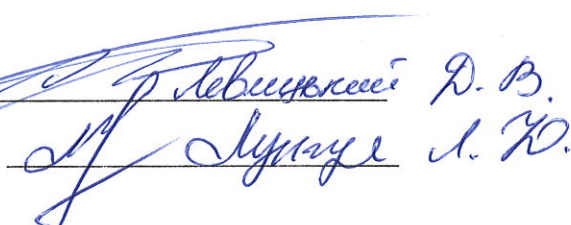 Левицький Д. В.
Лунгул Л. Ю.